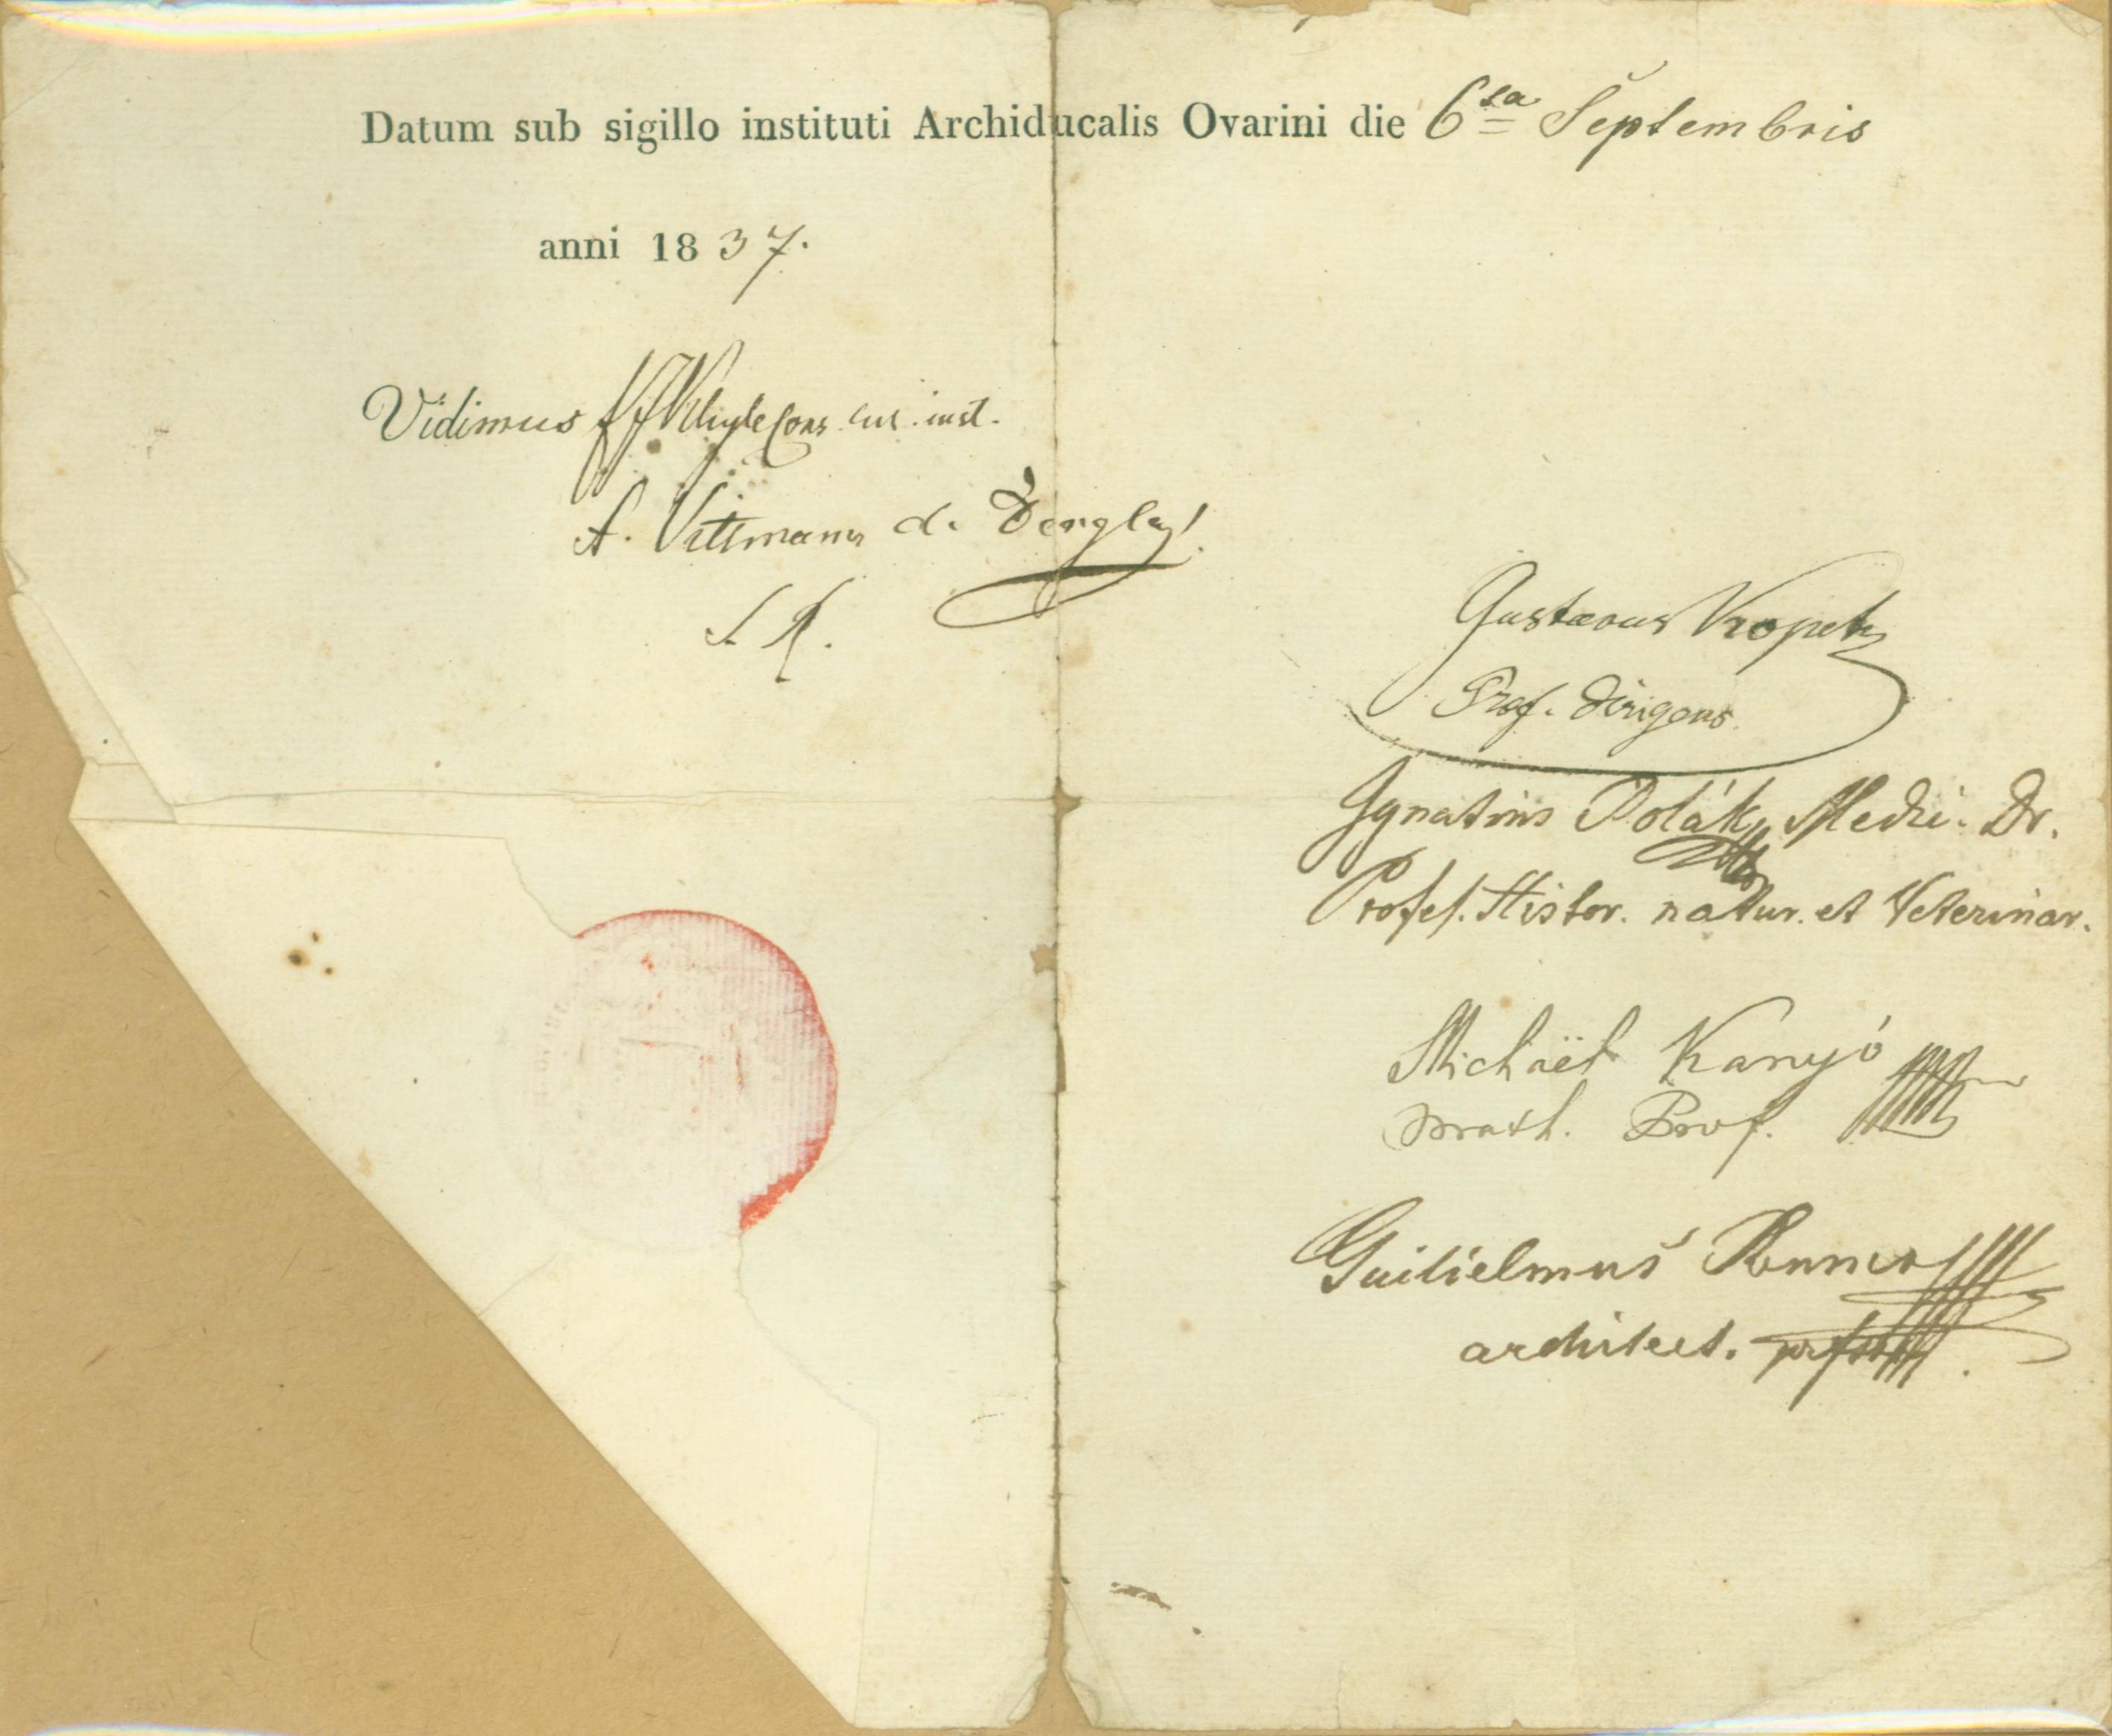 Datum sub sigillo instituti Archiducalis Ovarini die 6ta Septembris
anni 1837.
Vidimus Cons. inst.
A. Wittmann de Dengláz
Gustavus Kropetz
Prof. dirigens
Ignatius Polák, Medi. Dr.
Profes. Histor. natur. et Veterinar.
Michaël Kanyó
Math. Prof.
Guilielmus
architect.